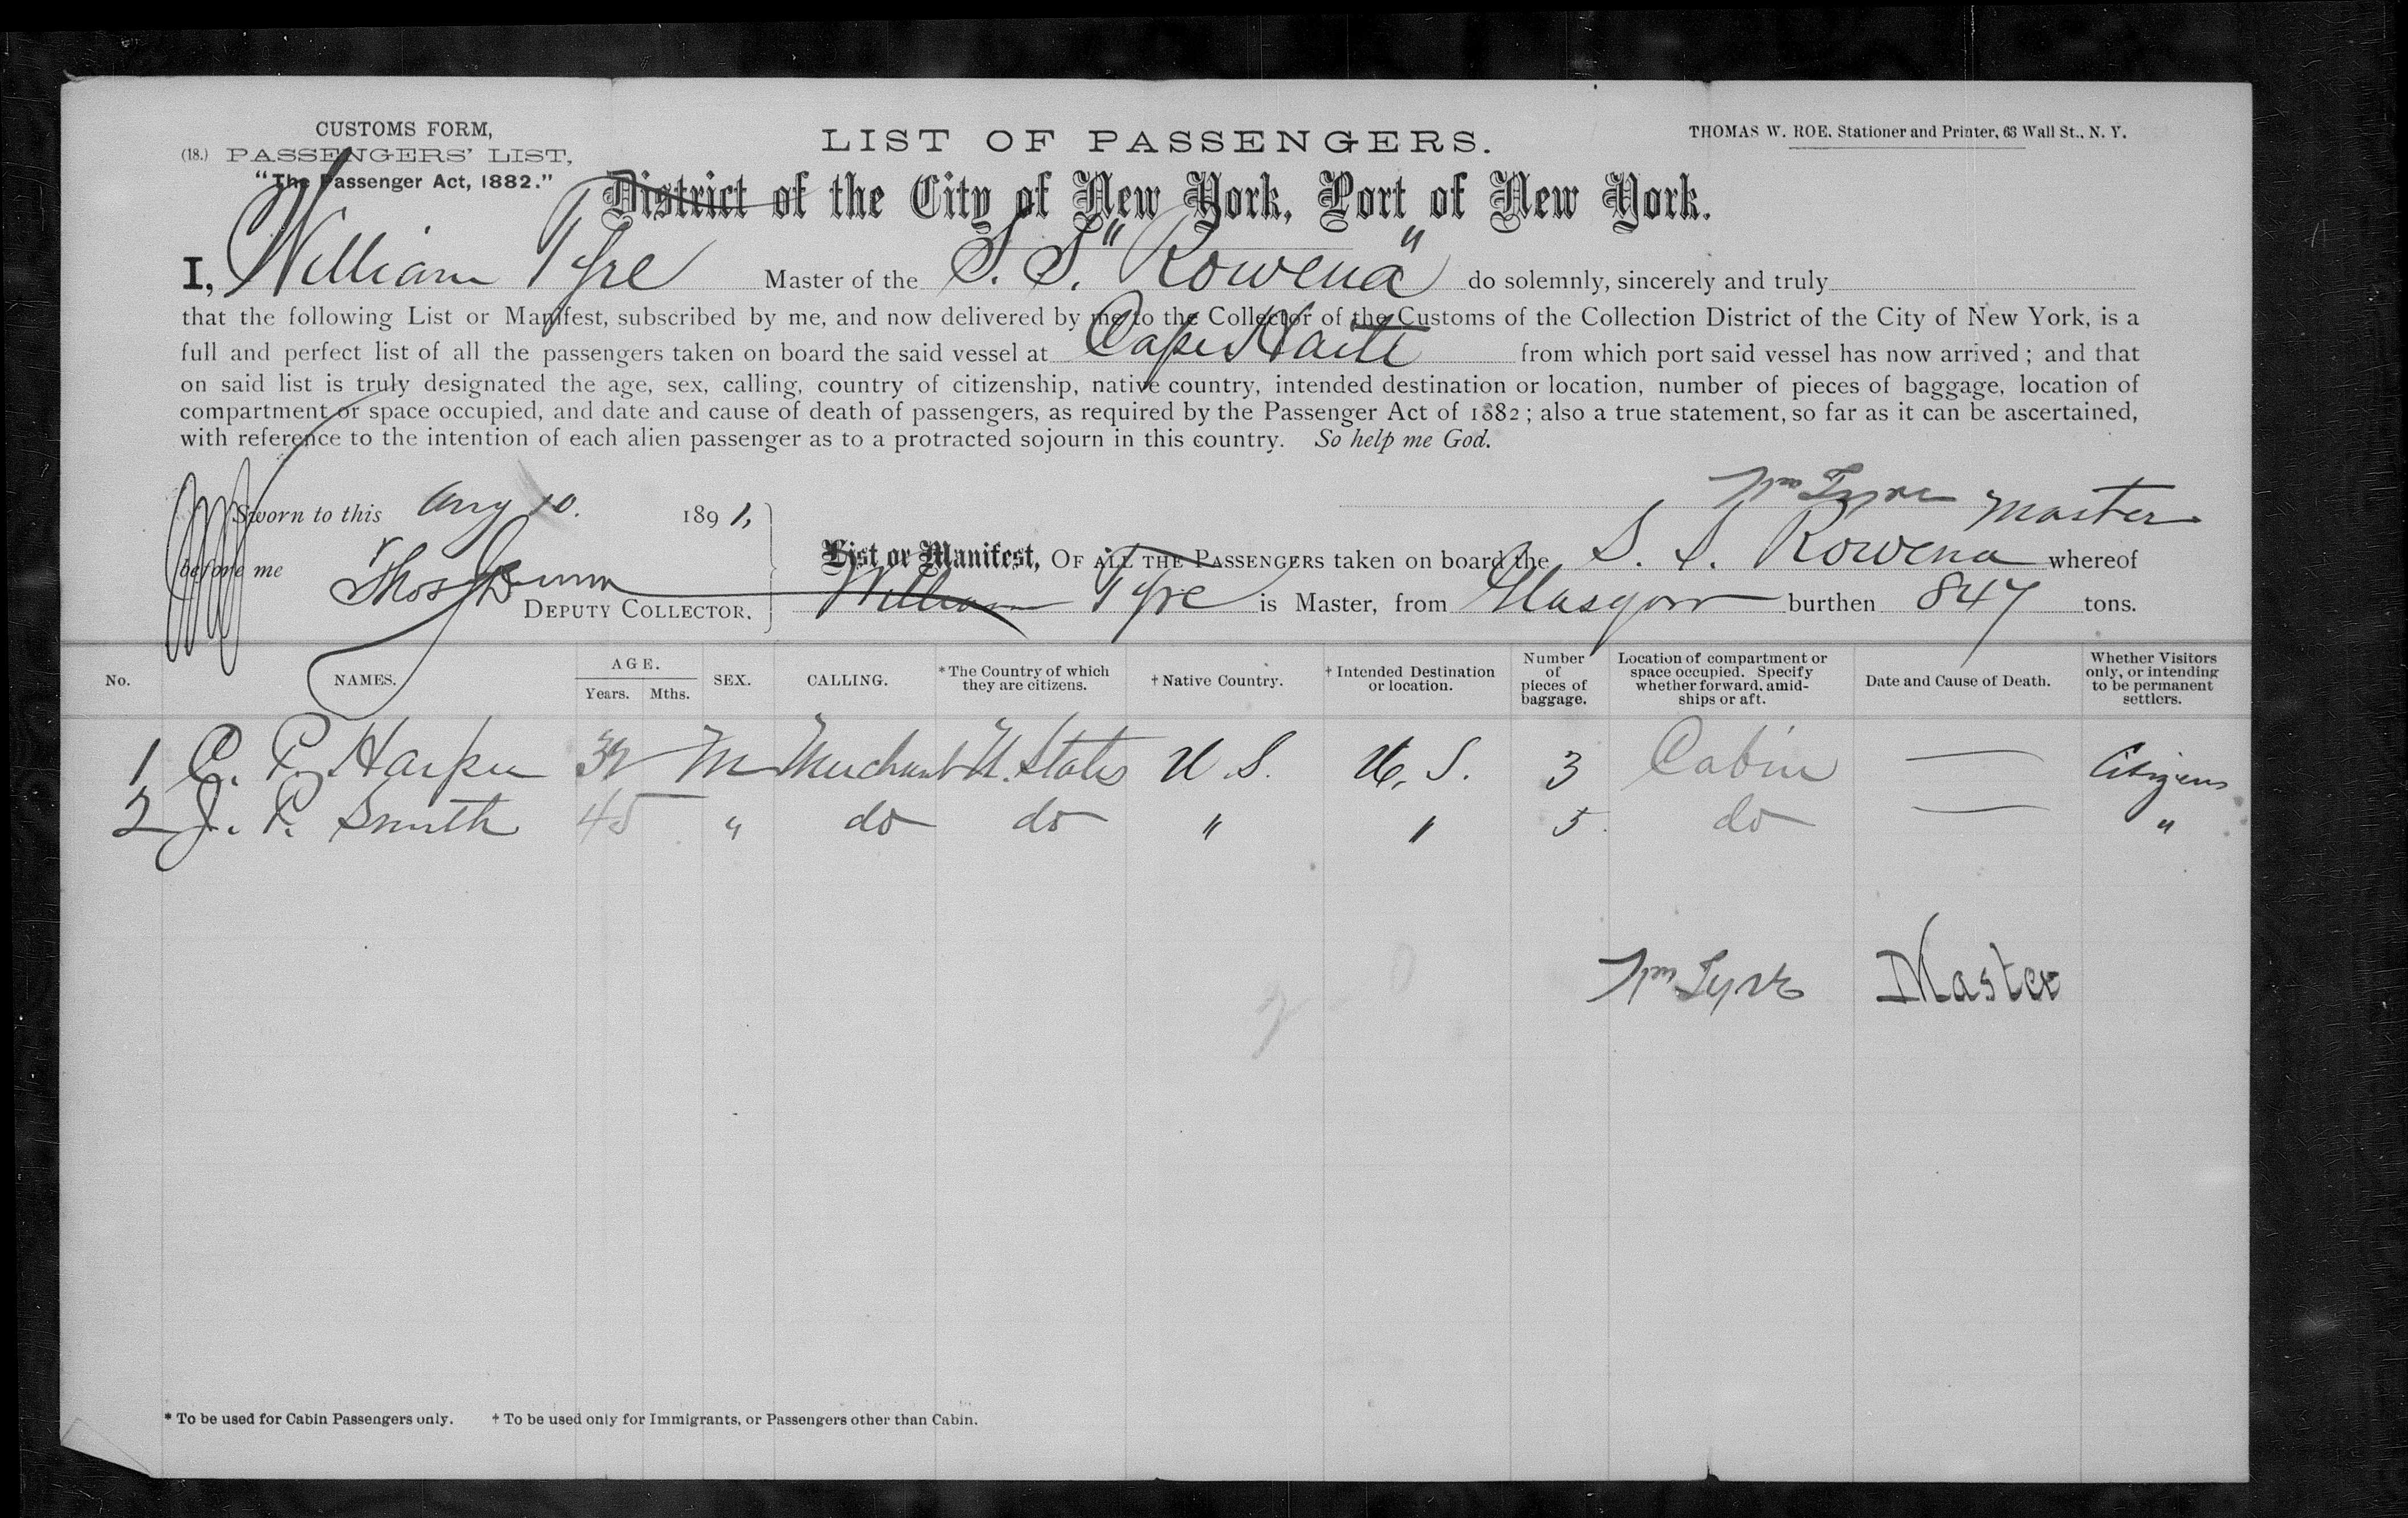 CUSTOMS FORM,
(18.) PASSENGERS' LIST,
"The Passenger Act, 1882."
LIST OF PASSENGERS.
THOMAS W. ROE, Stationer and Printer, 63 Wall St., N. Y.
District of the City of New York, Port of New York.
I, William Tyre Master of the S. S. "Rowena" do solemnly, sincerely and truly
that the following List or Manifest, subscribed by me, and now delivered by me to the Collector of the Customs of the Collection District of the City of New York, is a
full and perfect list of all the passengers taken on board the said vessel at Cape Haiti from which port said vessel has now arrived; and that
on said list is truly designated the age, sex, calling, country of citizenship, native country, intended destination or location, number of pieces of baggage, location of
compartment or space occupied, and date and cause of death of passengers, as required by the Passenger Act of 1882; also a true statement, so far as it can be ascertained,
with reference to the intention of each alien passenger as to a protracted sojourn in this country. So help me God.
Wm Tyre Master
Sworn to this Aug 10. 1891,
before me Thos Dunn
DEPUTY COLLECTOR.
List or Manifest, OF ALL THE PASSENGERS taken on board the S. S. Rowena whereof
William Tyre is Master, from Glasgow burthen 847 tons.
No. NAMES. AGE. Years. Mths. SEX. CALLING. *The Country of which they are citizens. †Native Country. †Intended Destination or location. Number of pieces of baggage. Location of compartment or space occupied. Specify whether forward, amid-ships or aft. Date and Cause of Death. Whether Visitors only, or intending to be permanent settlers.
1 C. P. Harper M Merchant U. States U. S. U. S. 3 Cabin — Citizens
2 J. P. Smith 45 " do do " " 5 do — "
Wm Tyre Master
* To be used for Cabin Passengers only. † To be used only for Immigrants, or Passengers other than Cabin.